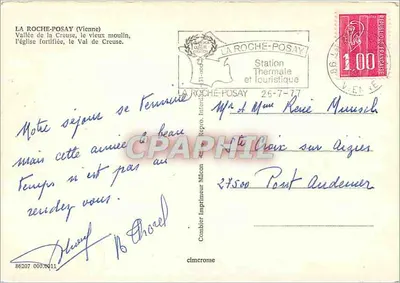 LA ROCHE-POSAY (Vienne)
Vallée de la Creuse, le vieux moulin,
l'église fortifiée, le Val de Creuse.
LA ROCHE-POSAY
Station
Thermale
et Touristique
LA ROCHE-POSAY 26-7-77
VIENNE
1.00
Notre séjour se termine
mais cette année le beau
temps n'est pas au
rendez vous.
Mr et Mme René Munsch
Ste Croix sur Aizier
27500 Pont Audemer
CPAPHIL
Combier Imprimeur Mâcon
cimcrome